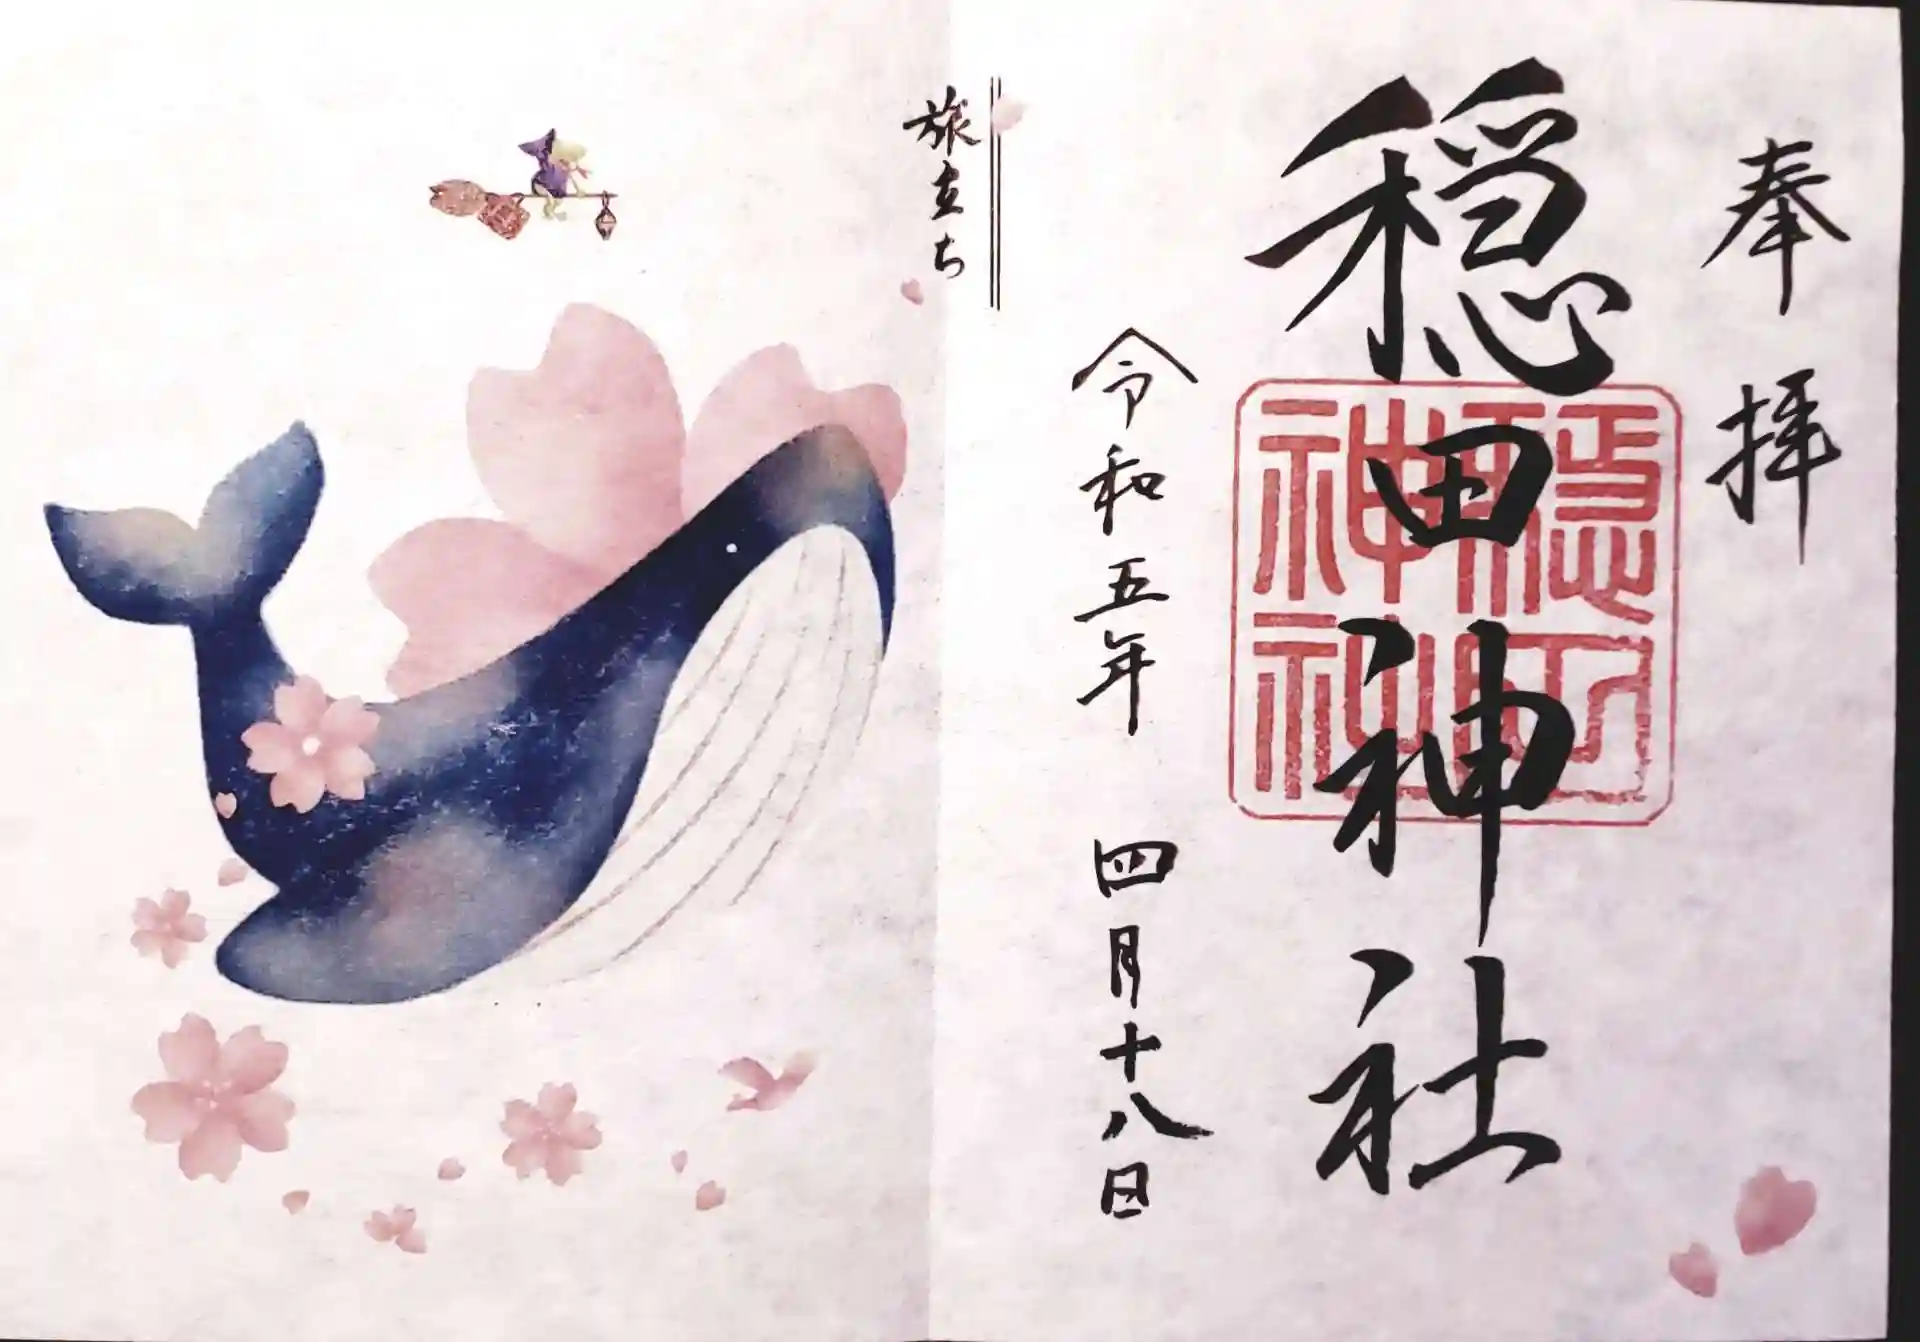 奉拝
穏田神社
穏田神社
令和五年 四月十八日
旅立ち